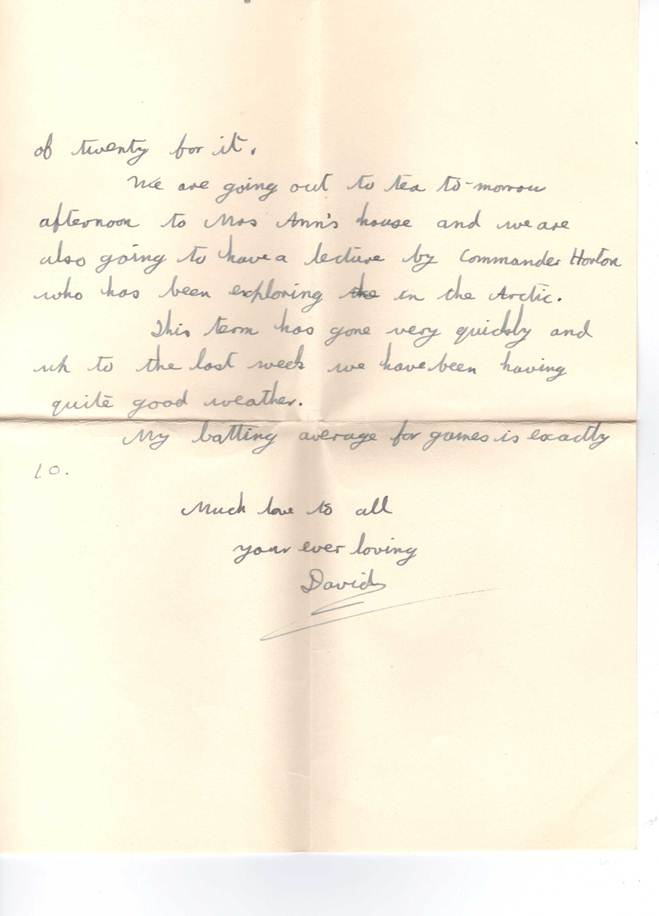 of twenty for it.
We are going out to tea to-morrow
afternoon to Mrs Ann's house and we are
also going to have a lecture by Commander Horton
who has been exploring the in the Arctic.
This term has gone very quickly and
up to the last week we have been having
quite good weather.
My batting average for games is exactly
10.
Much love to all
your ever loving
David